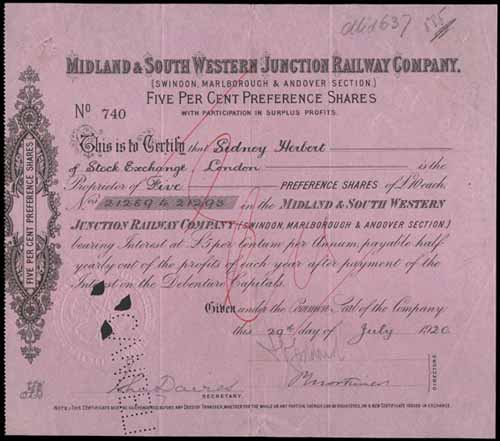 555
MIDLAND & SOUTH WESTERN JUNCTION RAILWAY COMPANY.
(SWINDON, MARLBOROUGH & ANDOVER SECTION.)
FIVE PER CENT PREFERENCE SHARES
WITH PARTICIPATION IN SURPLUS PROFITS.
No 740
This is to Certify that Sidney Herbert
of Stock Exchange London is the
Proprietor of Five PREFERENCE SHARES of £10 each,
Nos 21289 to 21293 in the MIDLAND & SOUTH WESTERN
JUNCTION RAILWAY COMPANY (SWINDON, MARLBOROUGH & ANDOVER SECTION.)
bearing Interest at £5 per Centum per Annum, payable half
yearly out of the profits of each year after payment of the
Interest on the Debenture Capitals.
Given under the Common Seal of the Company
this 29th day of July 1920
DIRECTORS.
Davies
SECRETARY.
NOTE: THIS CERTIFICATE MUST BE SURRENDERED BEFORE ANY DEED OF TRANSFER, WHETHER FOR THE WHOLE OR ANY PORTION THEREOF CAN BE REGISTERED, OR A NEW CERTIFICATE ISSUED IN EXCHANGE.
FIVE PER CENT PREFERENCE SHARES